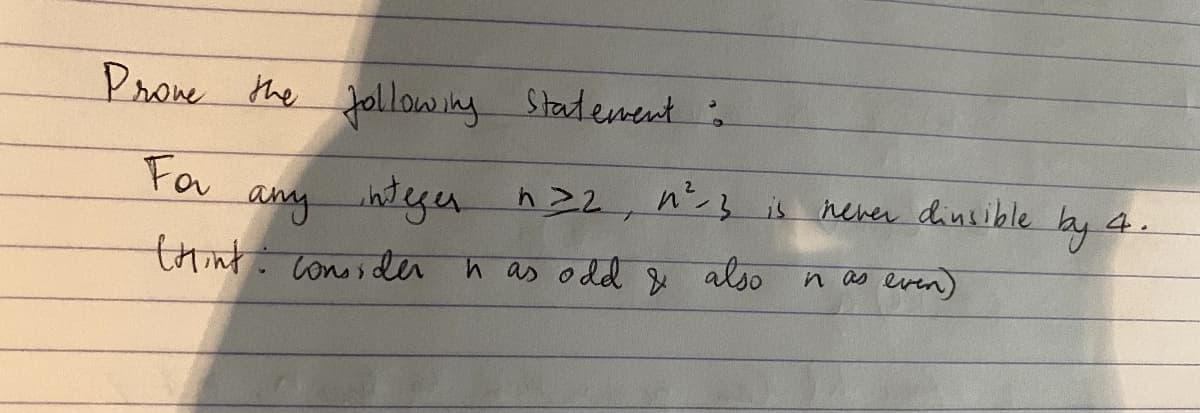 Prove the following statement :
For any integer n ≥ 2, n² - 3 is never divisible by 4.
(Hint : consider n as odd & also n as even)